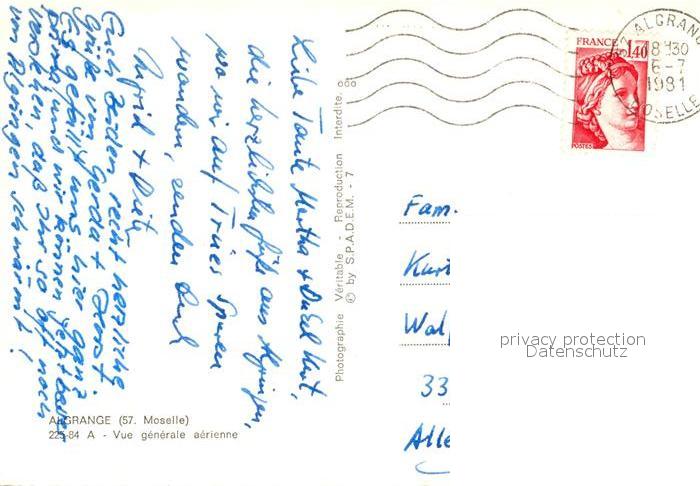 Liebe Tante Martha + Onkel Kurt,
die herzlichsten Grüße aus Algringen,
wo wir auf Trues Spuren
wandern, senden Euch
Ingrid + Dietz
Euch beiden recht herzliche
Grüße von Gerda + Horst.
Es gefällt uns hier ganz
prima und wir können jetzt
verstehen, daß Ihr so oft noch
von Algringen schwärmt!
ALGRANGE (57. Moselle)
225-84 A - Vue générale aérienne
Photographie Véritable - Reproduction Interdite.
© by S.P.A.D.E.M. - 7
FRANCE
1,40
POSTES
57 ALGRANGE
18H30
6-7
1981
MOSELLE
Fam.
Kurt
Wal
33
Alle
privacy protection
Datenschutz